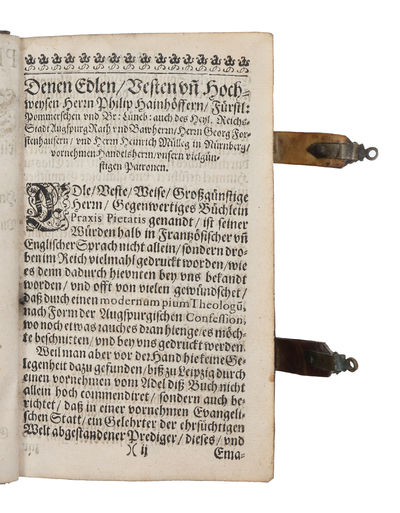 Denen Edlen/ Vesten uñ Hoch-
weysen Herrn Philip Hainhöffern/ Fürstl:
Pommerschen und Br: Lüneb: auch des Heyl. Reichs-
Stadt Augspurg Rath und Bawherrn/ Herrn Georg For-
stenhausern/ und Herrn Heinrich Mülleg in Nürnberg/
vornehmen Handelsherrn/ unsern vielgün-
stigen Patronen.
EDle/ Veste/ Weise/ Großgünstige
Herrn/ Gegenwertiges Büchlein
Praxis Pietatis genandt/ ist seiner
Würden halb in Frantzösischer uñ
Englischer Sprach nicht allein/ sondern dro-
ben im Reich vielmahl gedruckt worden/ wie
es denn dadurch hieunten bey uns bekandt
worden/ und offt von vielen gewündschet/
daß durch einen modernum pium Theologũ,
nach Form der Augspurgischen Confession,
wo noch etwas rauches dran hienge/ es möch-
te beschnitten/ und bey uns gedruckt werden.
Weil man aber vor der Hand hie keine Ge-
legenheit dazu gefunden/ biß zu Leipzig durch
einen vornehmen vom Adel diß Buch nicht
allein hoch commendiret/ sondern auch be-
richtet/ daß in einer vornehmen Evangeli-
schen Statt/ ein Gelehrter der ehrsüchtigen
Welt abgestandener Prediger/ dieses/ und
)( ij Ema-